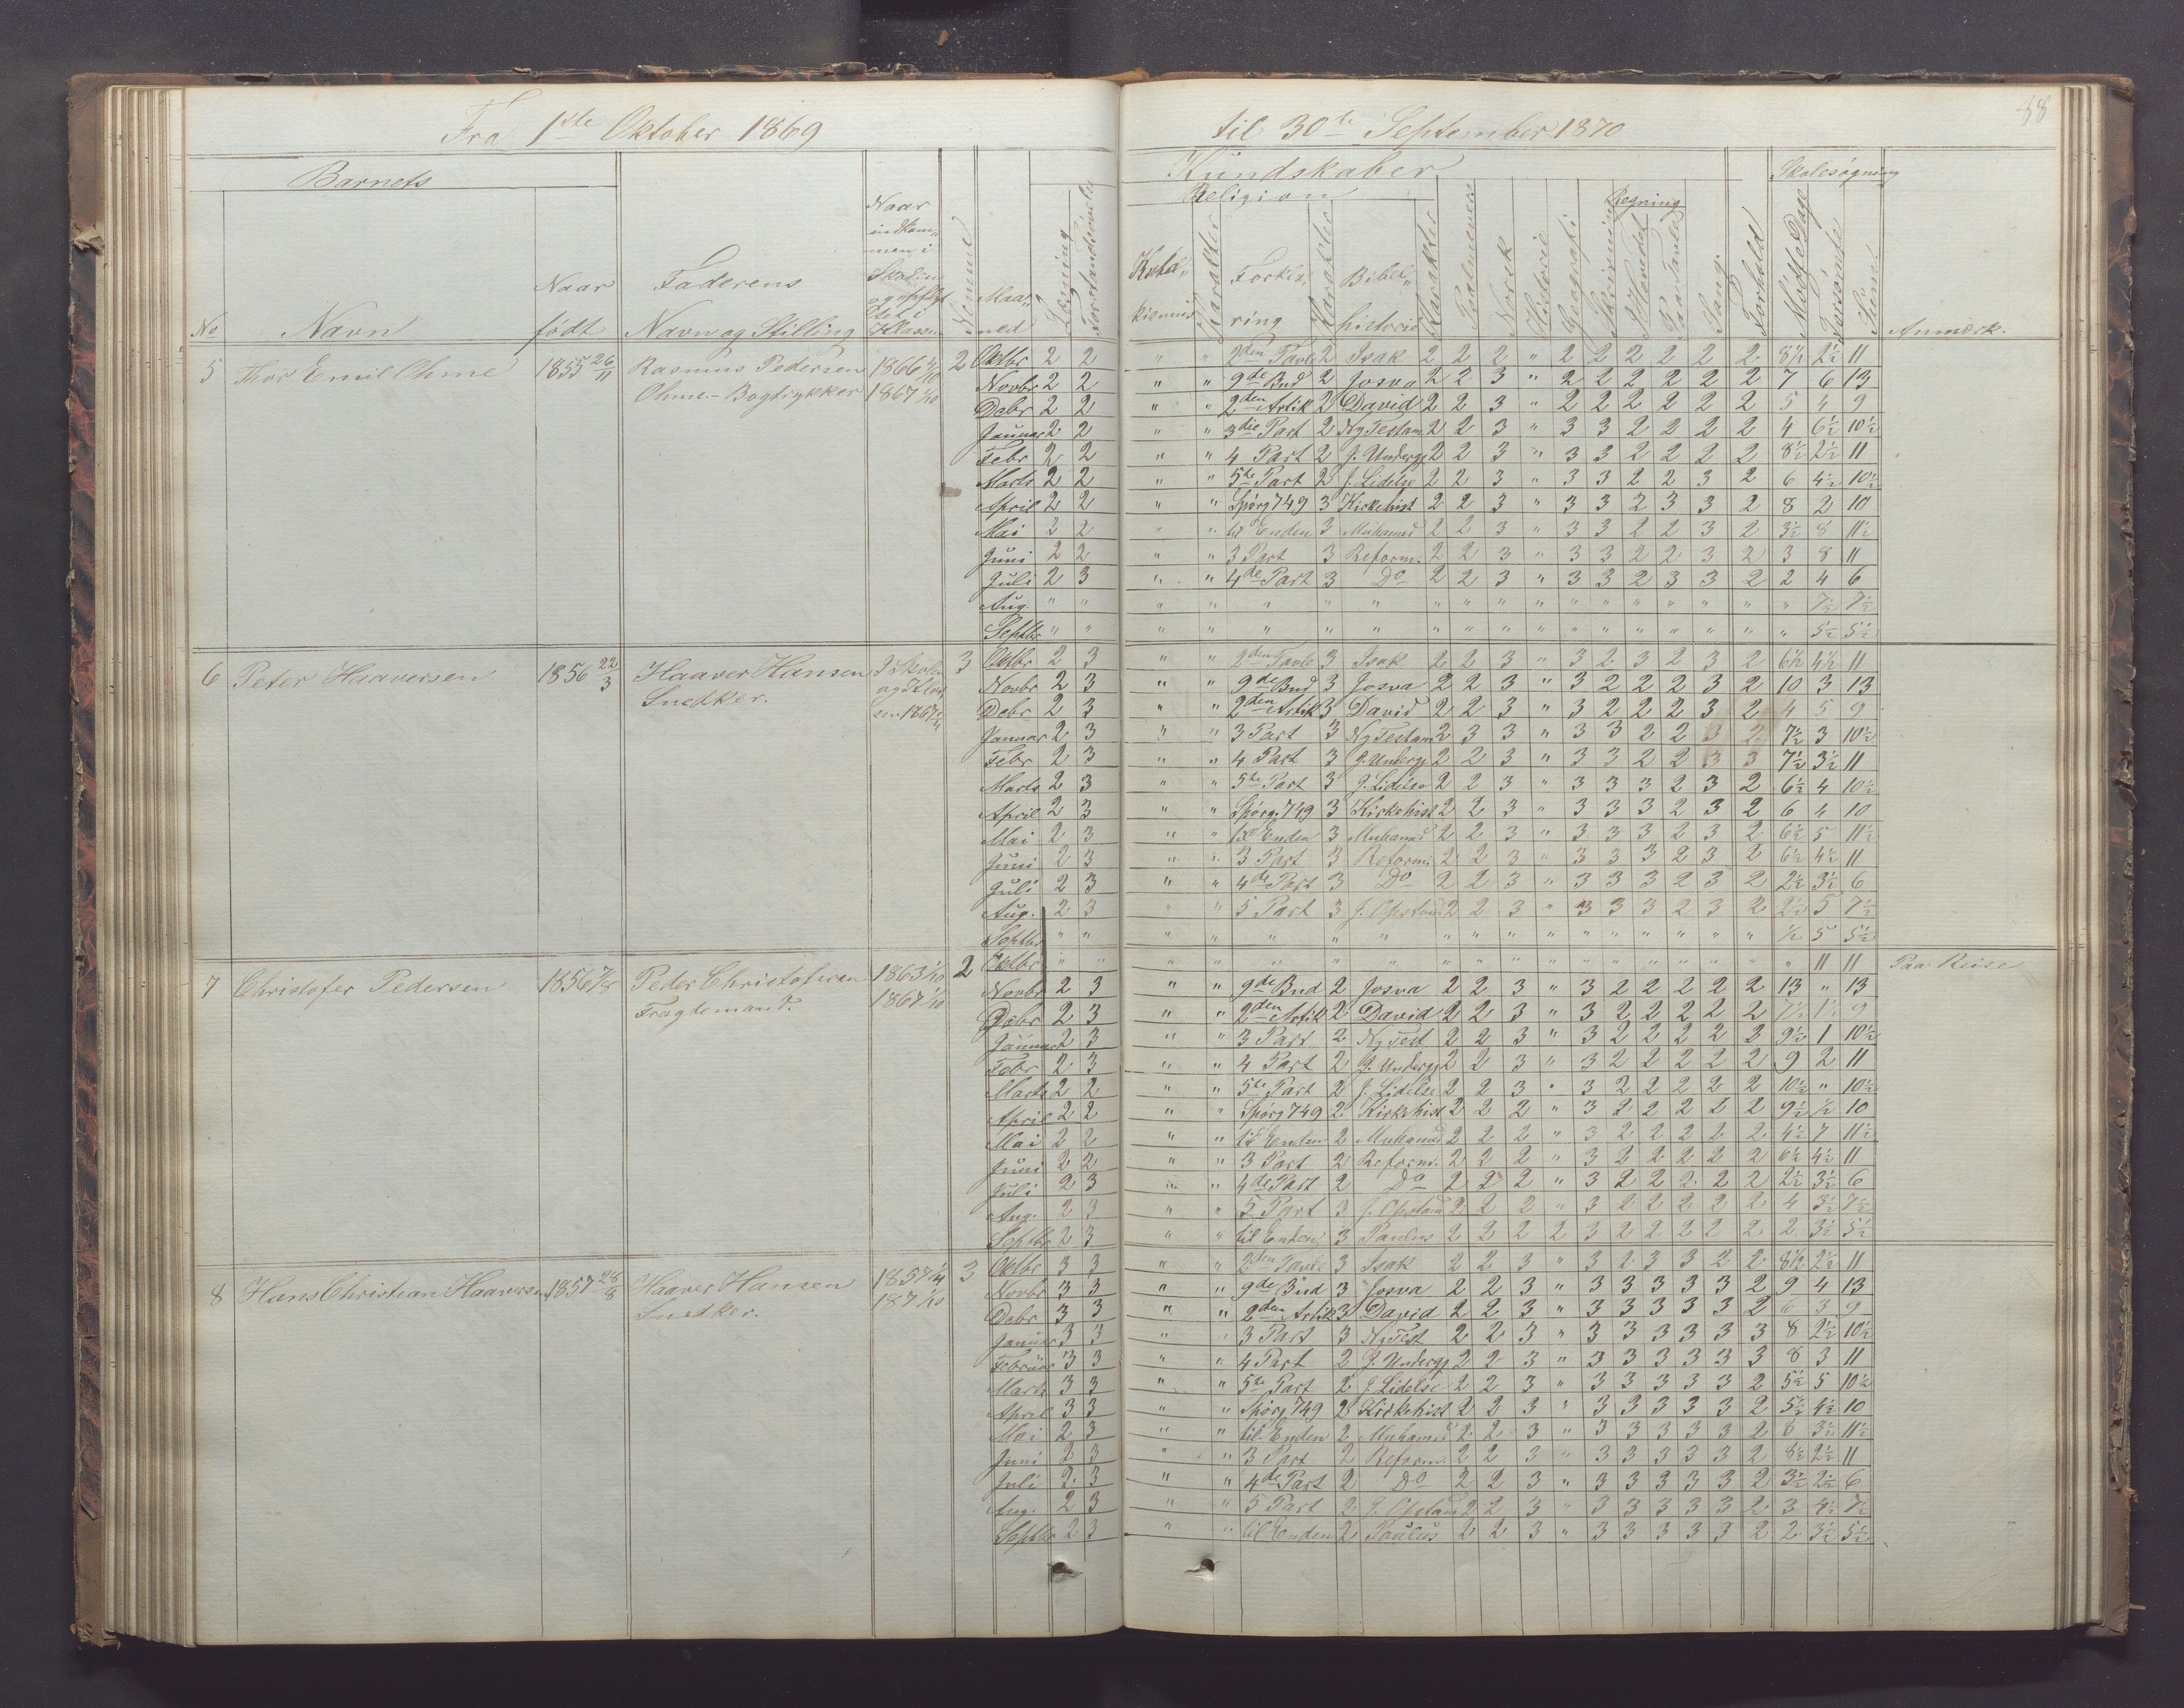 58
Fra 1ste Oktober 1869 til 30te September 1870
Barnets Kundskaber Skolesøgning
Religion Regning
No Navn Naar født Faderens Navn og Stilling Naar indkommen i Skolen og opflyttet i Klassen Evne Maaned Læsning Forstandsøvelse Katekismus Karakter Forklaring Karakter Bibelhistorie Karakter Fædrenevers Norsk Historie Geografi Skrivning I Hovedet Paa Tavle Sang Forhold Mødte Dage Forsømte Sum Anmærk.
5 Thor Emil Ohme 1855 26/11 Rasmus Pedersen 1866 1/10 2 Oktbr 2 2 " " 2den Tavle 2 Isak 2 2 2 " 2 2 2 2 2 2 8½ 2½ 11
Ohme - Bogtrykker 1867 1/10 Novbr 2 2 " " 9de Bud 2 Josva 2 2 3 " 2 2 2 2 2 2 7 6 13
Debr 2 2 " " 2den Artik 2 David 2 2 3 " 2 2 2 2 2 2 5 4 9
Januar 2 2 " " 3die Part 2 Ny Testam 2 2 3 " 3 3 2 2 2 2 4 6½ 10½
Febr 2 2 " " 4 Part 2 J. Underg 2 2 3 " 3 3 2 2 2 2 8½ 2½ 11
Marts 2 2 " " 5te Part 2 J. Lidelse 2 2 3 " 3 3 2 2 3 2 6 4½ 10½
April 2 2 " " Spørg 749 3 Kirkehist 2 2 3 " 3 3 2 3 3 2 8 2 10
Mai 3 2 " " til Enden 3 Muhamed 2 2 3 " 3 3 2 2 3 2 3½ 8 11½
Juni 2 2 " " 3 Part 3 Reform. 2 2 3 " 3 3 2 2 3 2 3 8 11
Juli 2 3 " " 4de Part 3 Do 2 2 3 " 3 3 2 3 3 2 2 4 6
Aug. " " " " " " " " " " " " " " " " " " 7½ 7½
Septbr " " " " " " " " " " " " " " " " " " 5½ 5½
6 Peter Haaversen 1856 22/3 Haaver Hansen I Skolen 3 Oktbr 2 3 " " 2den Tavle 3 Isak 2 2 3 " 3 2 3 2 3 2 6½ 4½ 11
Snedker. og Klassen 1867 Novbr 2 3 " " 9de Bud 3 Josva 2 2 3 " 3 2 2 2 3 2 10 3 13
Debr 2 3 " " 2den Artik 3 David 2 2 3 " 3 2 2 2 3 2 4 5 9
Januar 2 3 " " 3 Part 3 Ny Testam 2 3 3 " 3 3 2 2 3 2 7½ 3 10½
Febr 2 3 " " 4 Part 3 J. Underg 2 2 3 " 3 3 2 2 3 3 7½ 3½ 11
Marts 2 3 " " 5te Part 3 J. Lidelse 2 2 3 " 3 3 3 2 3 2 6½ 4 10½
April 2 3 " " Spørg. 749 3 Kirkehist 2 2 3 " 3 3 3 2 3 2 6 4 10
Mai 2 3 " " til Enden 3 Muhamed 2 2 3 " 3 3 3 2 3 2 6½ 5 11½
Juni 2 3 " " 3 Part 3 Reform. 2 2 3 " 3 3 3 2 3 2 6½ 4½ 11
Juli 2 3 " " 4de Part 3 Do 2 2 3 " 3 3 3 2 3 2 2½ 3½ 6
Aug. 2 3 " " 5 Part 3 J. Opstand 2 2 3 " 3 3 3 2 3 2 2½ 5 7½
Septbr " " " " " " " " " " " " " " " " " ½ 5 5½
7 Christofer Pedersen 1856 Peder Christofersen 1863 1/10 2 Oktbr " " " " " " " " " " " " " " " " " " 11 11 Paa Reise
Fragtemand. 1867 1/10 Novbr 2 3 " " 9de Bud 2 Josva 2 2 3 " 3 2 2 2 2 2 13 " 13
Debr 2 3 " " 2den Artik 2 David 2 2 3 " 3 2 2 2 2 2 7½ 1½ 9
Januar 2 3 " " 3 Part 2 Ny Test 2 2 3 " 3 2 2 2 2 2 9½ 1 10½
Febr 2 3 " " 4 Part 2 J. Underg 2 2 3 " 3 2 2 2 2 2 9 2 11
Marts 2 2 " " 5te Part 2 J. Lidelse 2 2 3 " 3 2 2 2 2 2 10½ " 10½
April 2 2 " " Spørg 749 2 Kirkehist 2 2 2 " 3 2 2 2 2 2 9½ ½ 10
Mai 2 2 " " til Enden 2 Muhamed 2 2 2 " 3 2 2 2 2 2 4½ 7 11½
Juni 2 2 " " 3 Part 2 Reform. 2 2 2 " 3 2 2 2 2 2 6½ 4½ 11
Juli 2 3 " " 4de Part 2 Do 2 2 2 " 3 2 2 2 2 2 2½ 3½ 6
Aug. 2 3 " " 5 Part 3 J. Opstand 2 2 2 " 3 2 2 2 2 2 4 3½ 7½
Septbr 2 3 " " til Enden 3 Paulus 2 2 2 2 3 2 2 2 2 2 2 3½ 5½
8 Hans Christian Haaversen 1857 28/8 Haaver Hansen 1857 3 Oktbr 3 3 " " 2den Tavle 3 Isak 2 2 3 " 3 2 3 3 2 2 8½ 2½ 11
Snedker. 187 1/10 Novbr 3 3 " " 9de Bud 3 Josva 2 2 3 " 3 3 3 3 3 2 9 4 13
Debr 3 3 " " 2den Artik 3 David 2 2 3 " 3 3 3 3 3 2 6 3 9
Januar 3 3 " " 3 Part 3 Ny Test 2 2 3 " 3 3 3 3 3 3 8 2½ 10½
Februar 3 3 " " 4 Part 2 J. Underg 2 2 3 " 3 3 3 3 3 3 8 3 11
Marts 3 3 " " 5te Part 2 J. Lidelse 2 2 3 " 3 3 3 3 3 2 5½ 5 10½
April 3 3 " " Spørg 749 2 Kirkehist 2 2 3 " 3 3 3 3 3 2 5½ 4½ 10
Mai 2 3 " " til Enden 2 Muhamed 2 2 3 " 3 3 3 3 3 2 8 3½ 11½
Juni 2 3 " " 3 Part 2 Reform. 2 2 3 " 3 3 3 3 3 2 8½ 2½ 11
Juli 2 3 " " 4de Part 2 Do 2 2 3 " 3 3 3 3 3 2 3½ 2½ 6
Aug. 2 3 " " 5 Part 2 J. Opstand 2 2 3 " 3 3 3 3 3 2 3 4½ 7½
Septbr 2 3 " " til Enden 2 Paulus 2 2 3 " 3 3 3 3 3 2 2 3½ 5½